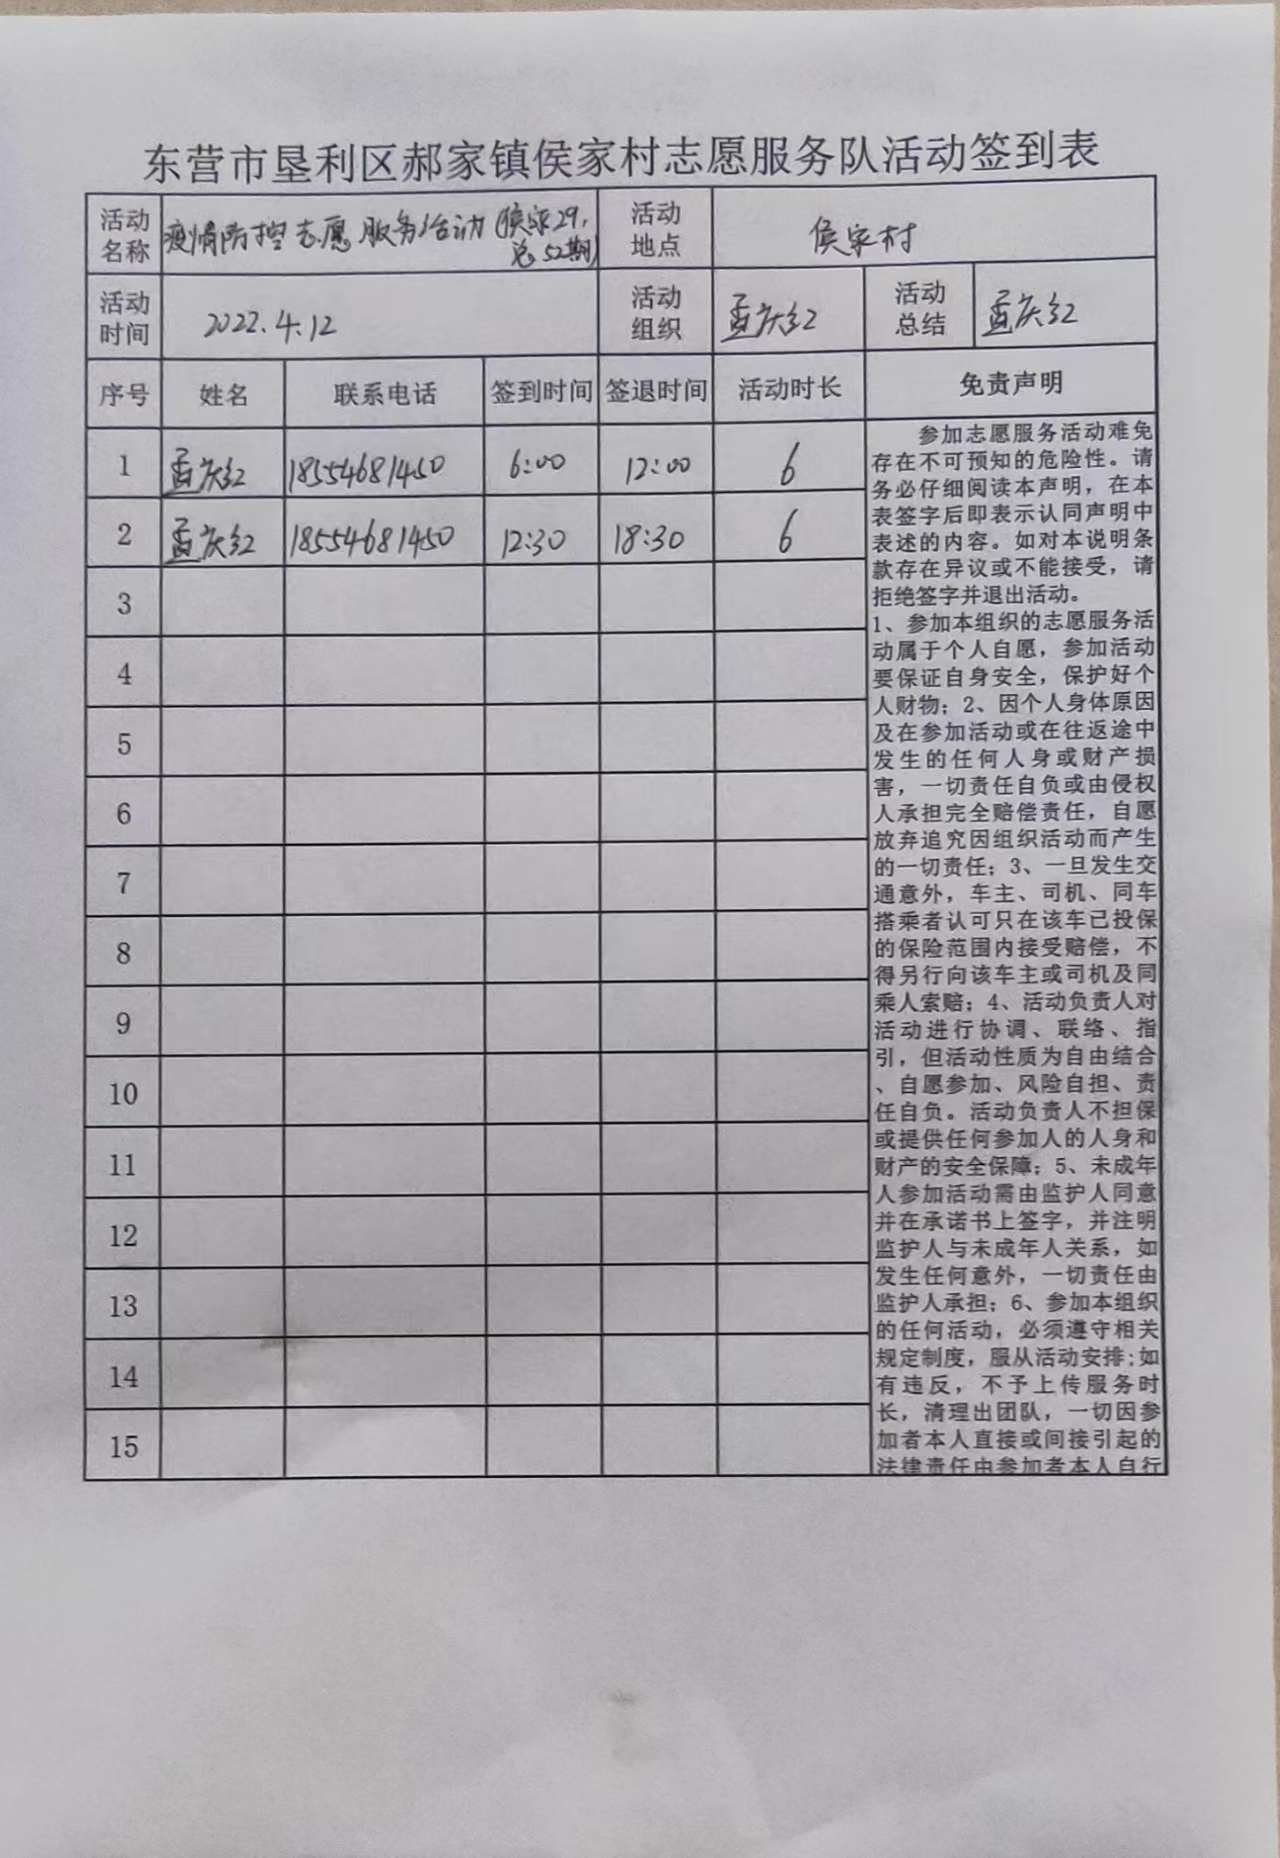 东营市垦利区郝家镇侯家村志愿服务队活动签到表
活动名称 疫情防控志愿服务活动(侯家29,总52期) 活动地点 侯家村
活动时间 2022.4.12 活动组织 孟庆红 活动总结 孟庆红
序号 姓名 联系电话 签到时间 签退时间 活动时长 免责声明
1 孟庆红 18554681450 6:00 12:00 6
2 孟庆红 18554681450 12:30 18:30 6
3
4
5
6
7
8
9
10
11
12
13
14
15
参加志愿服务活动难免
存在不可预知的危险性。请
务必仔细阅读本声明，在本
表签字后即表示认同声明中
表述的内容。如对本说明条
款存在异议或不能接受，请
拒绝签字并退出活动。
1、参加本组织的志愿服务活
动属于个人自愿，参加活动
要保证自身安全，保护好个
人财物；2、因个人身体原因
及在参加活动或在往返途中
发生的任何人身或财产损
害，一切责任自负或由侵权
人承担完全赔偿责任，自愿
放弃追究因组织活动而产生
的一切责任；3、一旦发生交
通意外，车主、司机、同车
搭乘者认可只在该车已投保
的保险范围内接受赔偿，不
得另行向该车主或司机及同
乘人索赔；4、活动负责人对
活动进行协调、联络、指
引，但活动性质为自由结合
、自愿参加、风险自担、责
任自负。活动负责人不担保
或提供任何参加人的人身和
财产的安全保障；5、未成年
人参加活动需由监护人同意
并在承诺书上签字，并注明
监护人与未成年人关系，如
发生任何意外，一切责任由
监护人承担；6、参加本组织
的任何活动，必须遵守相关
规定制度，服从活动安排;如
有违反，不予上传服务时
长，清理出团队，一切因参
加者本人直接或间接引起的
法律责任由参加者本人自行